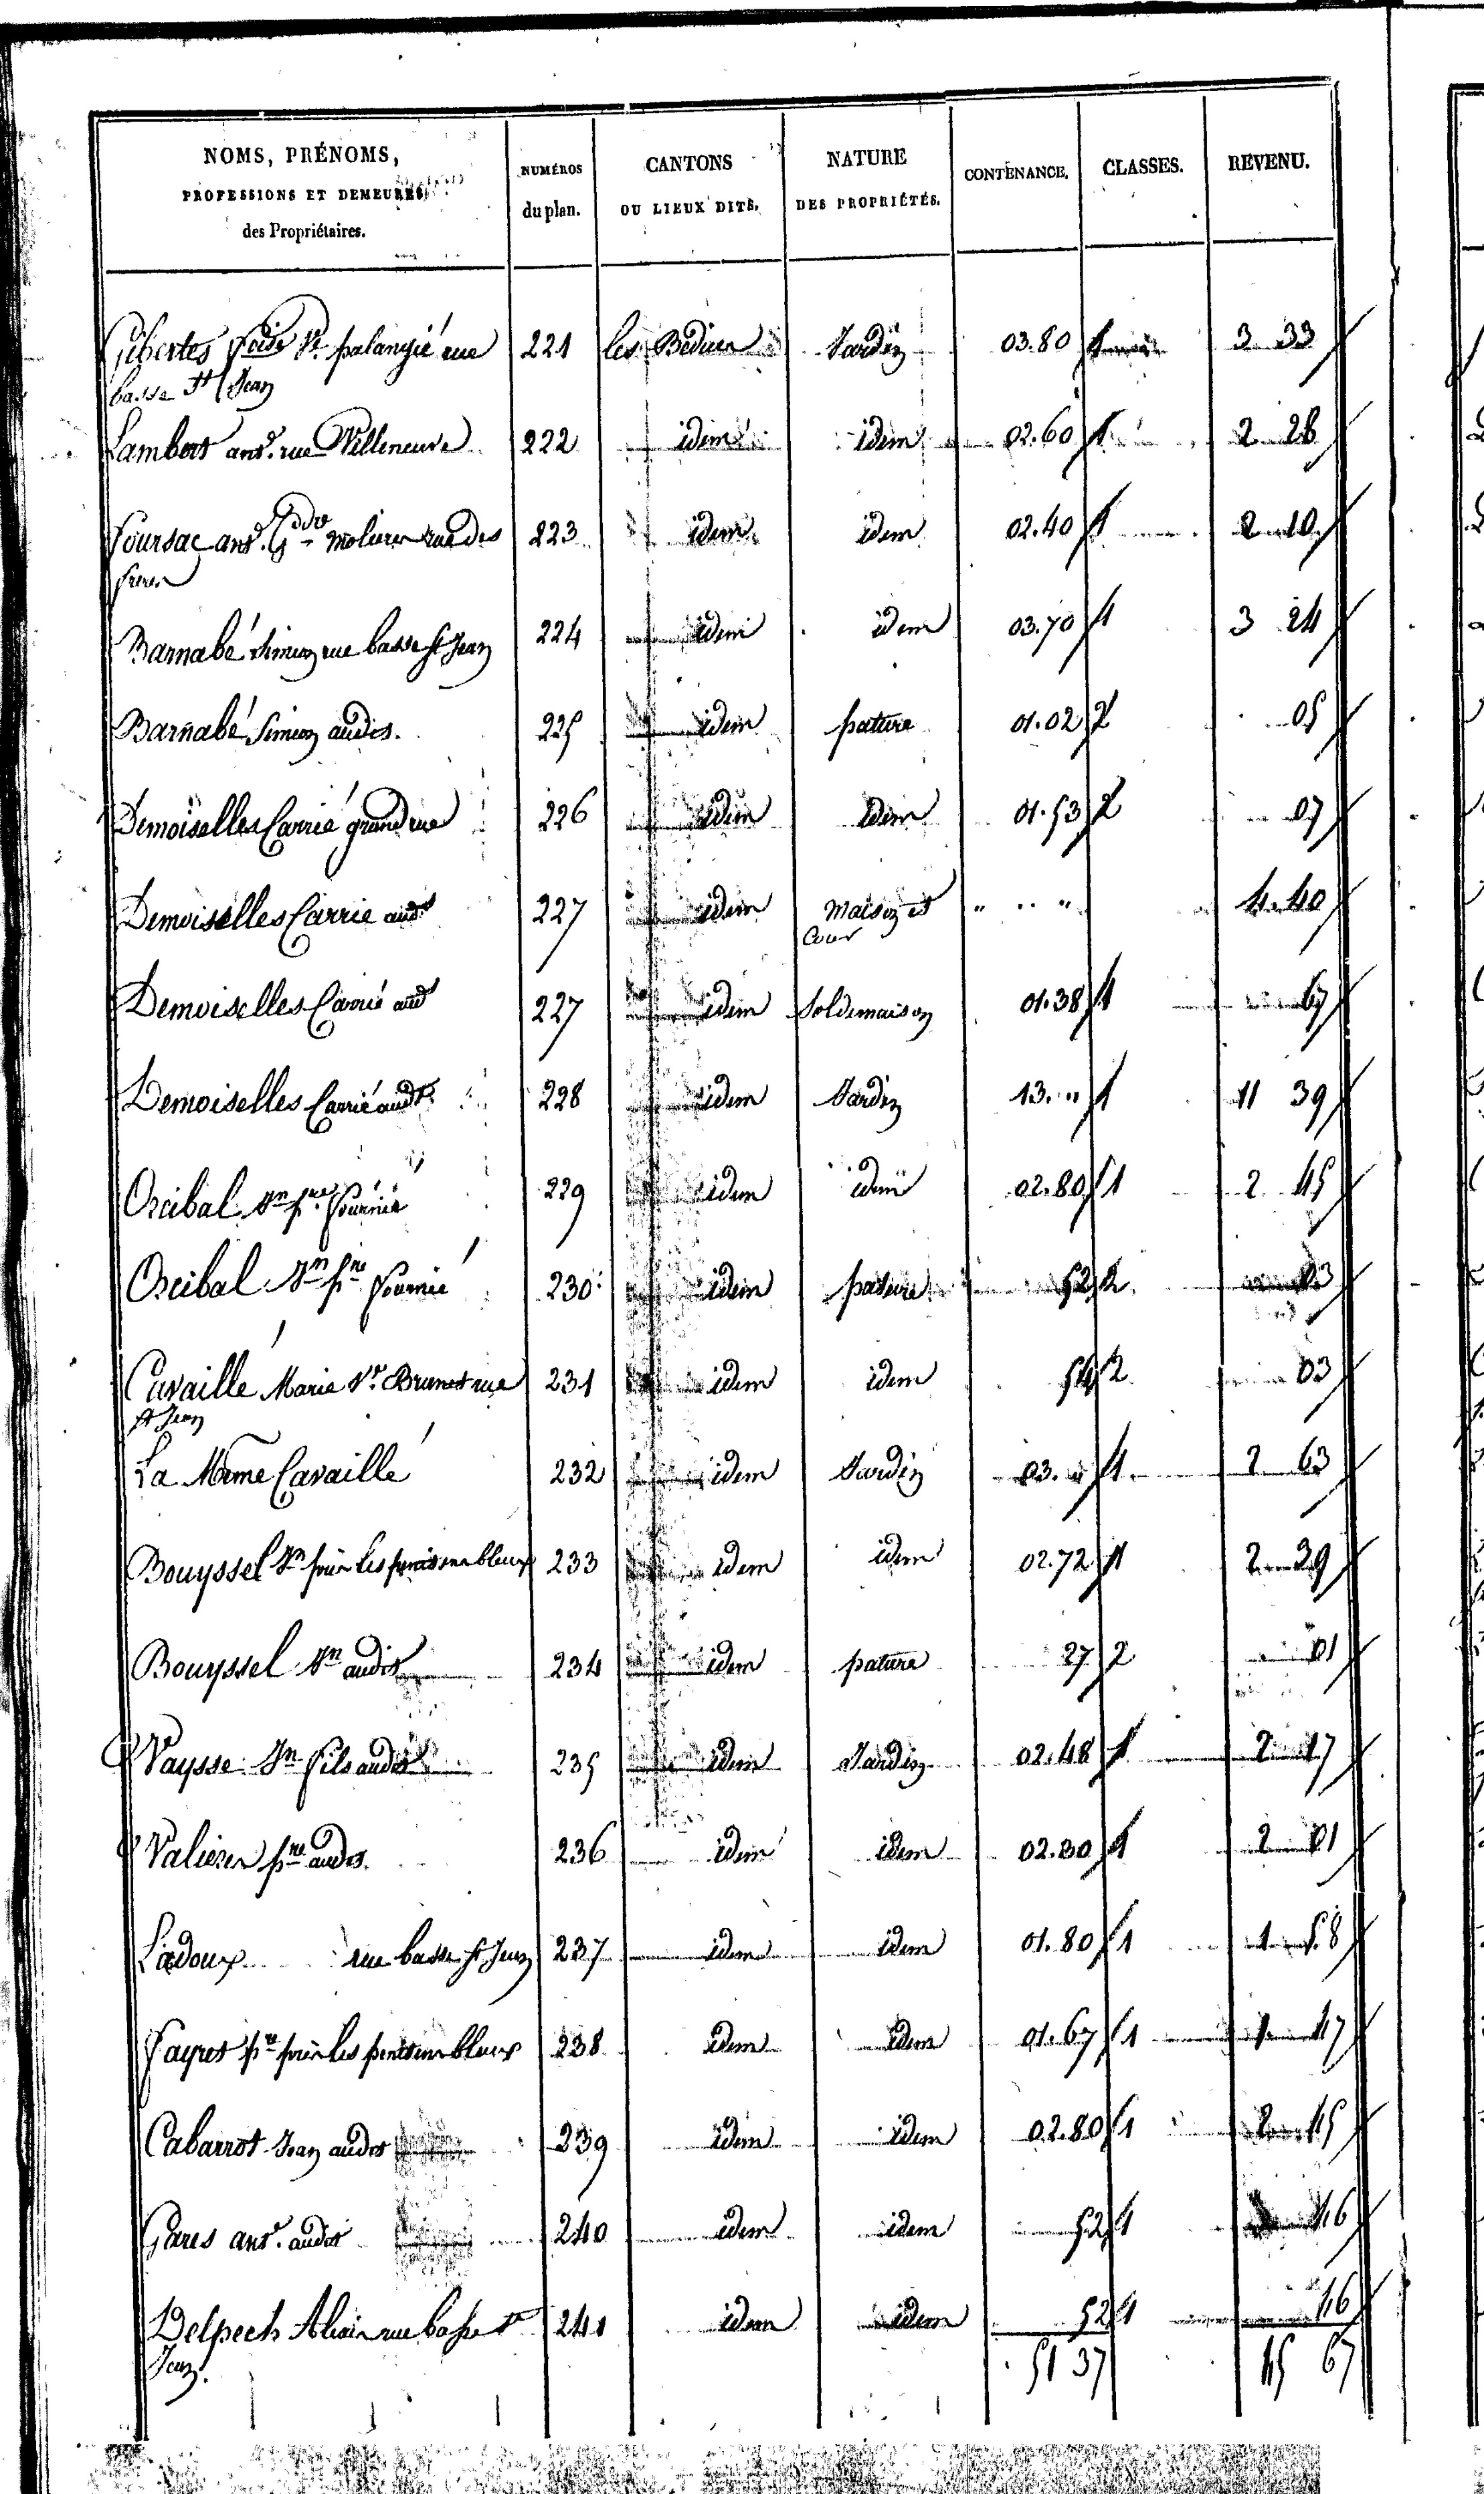 NOMS, PRÉNOMS,
PROFESSIONS ET DEMEURES
des Propriétaires.
NUMÉROS
du plan.
CANTONS
OU LIEUX DITS.
NATURE
DES PROPRIÉTÉS.
CONTENANCE.
CLASSES.
REVENU.
Gibertes Vve palangié rue 221 les Jardin 03.80 1 3 33
basse St Jean
Lambert ant. rue Villeneuve 222 idem idem 02.60 1 2 28
Foursac ant. Gdre molieres rue des 223 idem idem 02.40 1 2 10
freres
Barnabé Simeon rue basse St Jean 224 idem idem 03.70 1 3 24
Barnabé Simeon audit. 225 idem pature 01.02 2 05
Demoiselles Carrié grand rue 226 idem idem 01.53 2 07
Demoiselles Carrié audt 227 idem Maison et " " 4.40
Cour
Demoiselles Carrié audt 227 idem Sol de maison 01.38 1 67
Demoiselles Carrié audt 228 idem Jardin 13. " 1 11 39
Orcibal Jn pre Fournié 229 idem idem 02.80 1 2 45
Orcibal Jn pre Fournié 230 idem pature 52 2 03
Cavaillé Marie Ve Brunet rue 231 idem idem 54 2 03
St Jean
La Même Cavaillé 232 idem Jardin 03. " 1 2 63
Bouyssel Jn sur les penitens bleus 233 idem idem 02.72 1 2 39
Bouyssel Jn audit 234 idem pature 27 2 01
Vaysse Jn fils audit 235 idem Jardin 02.48 1 2 17
Valieres pre audit. 236 idem idem 02.30 1 2 01
Ladoux rue basse St Jean 237 idem idem 01.80 1 1 58
Fayret pre sur les penitens bleus 238 idem idem 01.67 1 1 47
Cabarrot Jean audit 239 idem idem 02.80 1 2 45
Gares ant. audit 240 idem idem 52 1 46
Delpech rue basse St 241 idem idem 52 1 46
Jean.
51 37 45 67